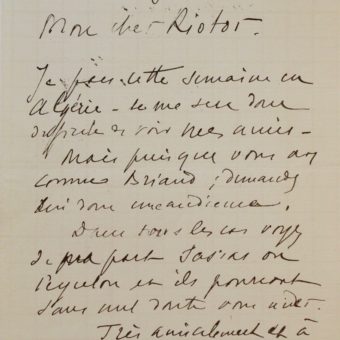 Mon cher Riotor.
Je pars cette semaine en
Algérie - il me sera donc
de voir mes amis -
Mais puisque vous avez
connu Briand, demandez
lui donc une audience.
Dans tous les cas voyez
de ma part
et ils pourront
sans nul doute vous aider.
Très amicalement et à